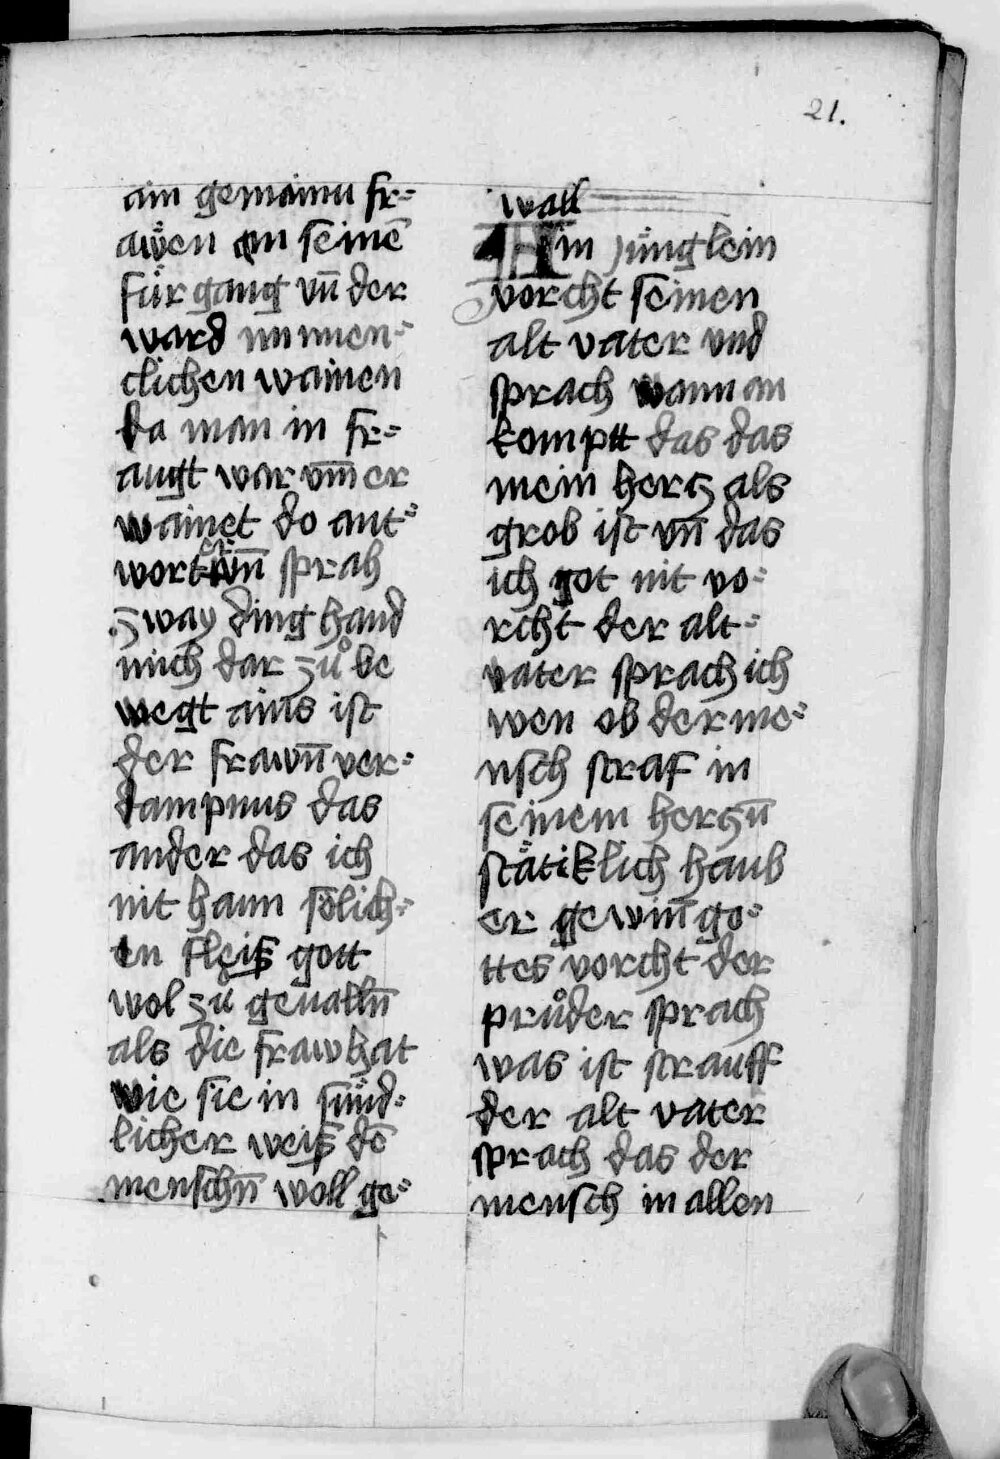 21.
ain gemainu fr=
awen an seinē
für gang vn̄ der
ward innnen=
clichen wainen
da man in fr=
augt war vm̄ er
wainet do ant=
wort er vn̄ sprah
zway ding hand
mich dar zů be
wegt ains ist
der frawn̄ ver=
dampnus das
ander das ich
nit hann sölich=
en fleiß gott
wol zů geualln̄
als die fraw hat
wie sie in sünd=
licher weiß dē
menschn̄ woll ge=
uall
Ain jünglein
vorcht seinen
alt vater und
sprach wann an
komptt das das
mein hercz als
grob ist vn̄ das
ich got nit vo=
rcht der alt=
vater sprach ich
wen ob der me=
nsch straf in
seinem herczn̄
stätiklich haub
er gewinn̄ go=
ttes vorcht der
průder sprach
was ist strauff
der alt vater
sprach das der
mensch in allen